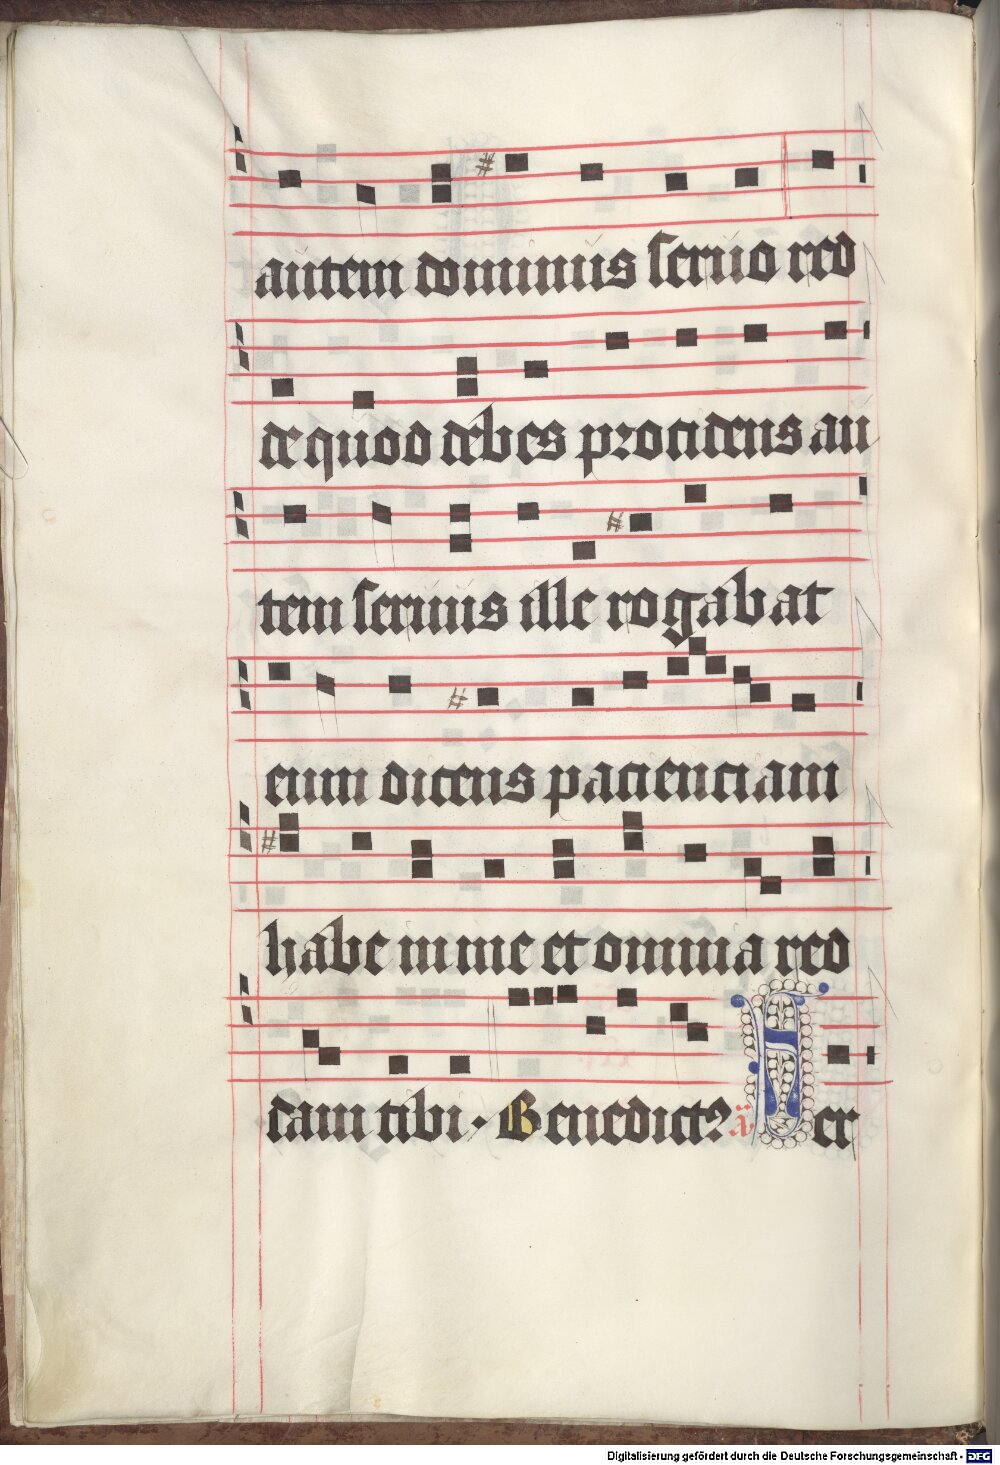 autem dominus seruo red
de quod debes procidens au
tem seruus ille rogabat
eum dicens pacienciam
habe in me et omnia red
dam tibi · Benedictꝰ a̅ Ser
Digitalisierung gefördert durch die Deutsche Forschungsgemeinschaft - DFG